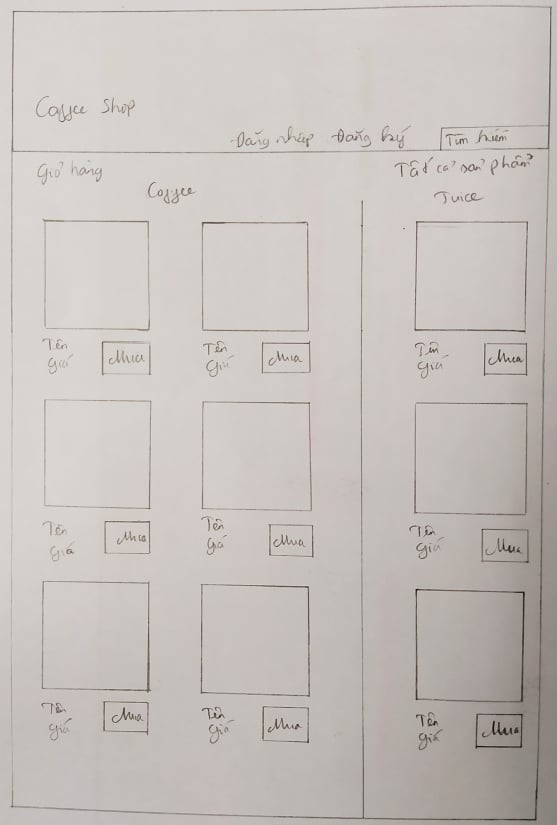 Coffee Shop
Đăng nhập Đăng ký Tìm kiếm
Giỏ hàng
Tất cả sản phẩm
Coffee
Juice
Tên
giá
Mua
Tên
giá
Mua
Tên
giá
Mua
Tên
giá
Mua
Tên
giá
Mua
Tên
giá
Mua
Tên
giá
Mua
Tên
giá
Mua
Tên
giá
Mua